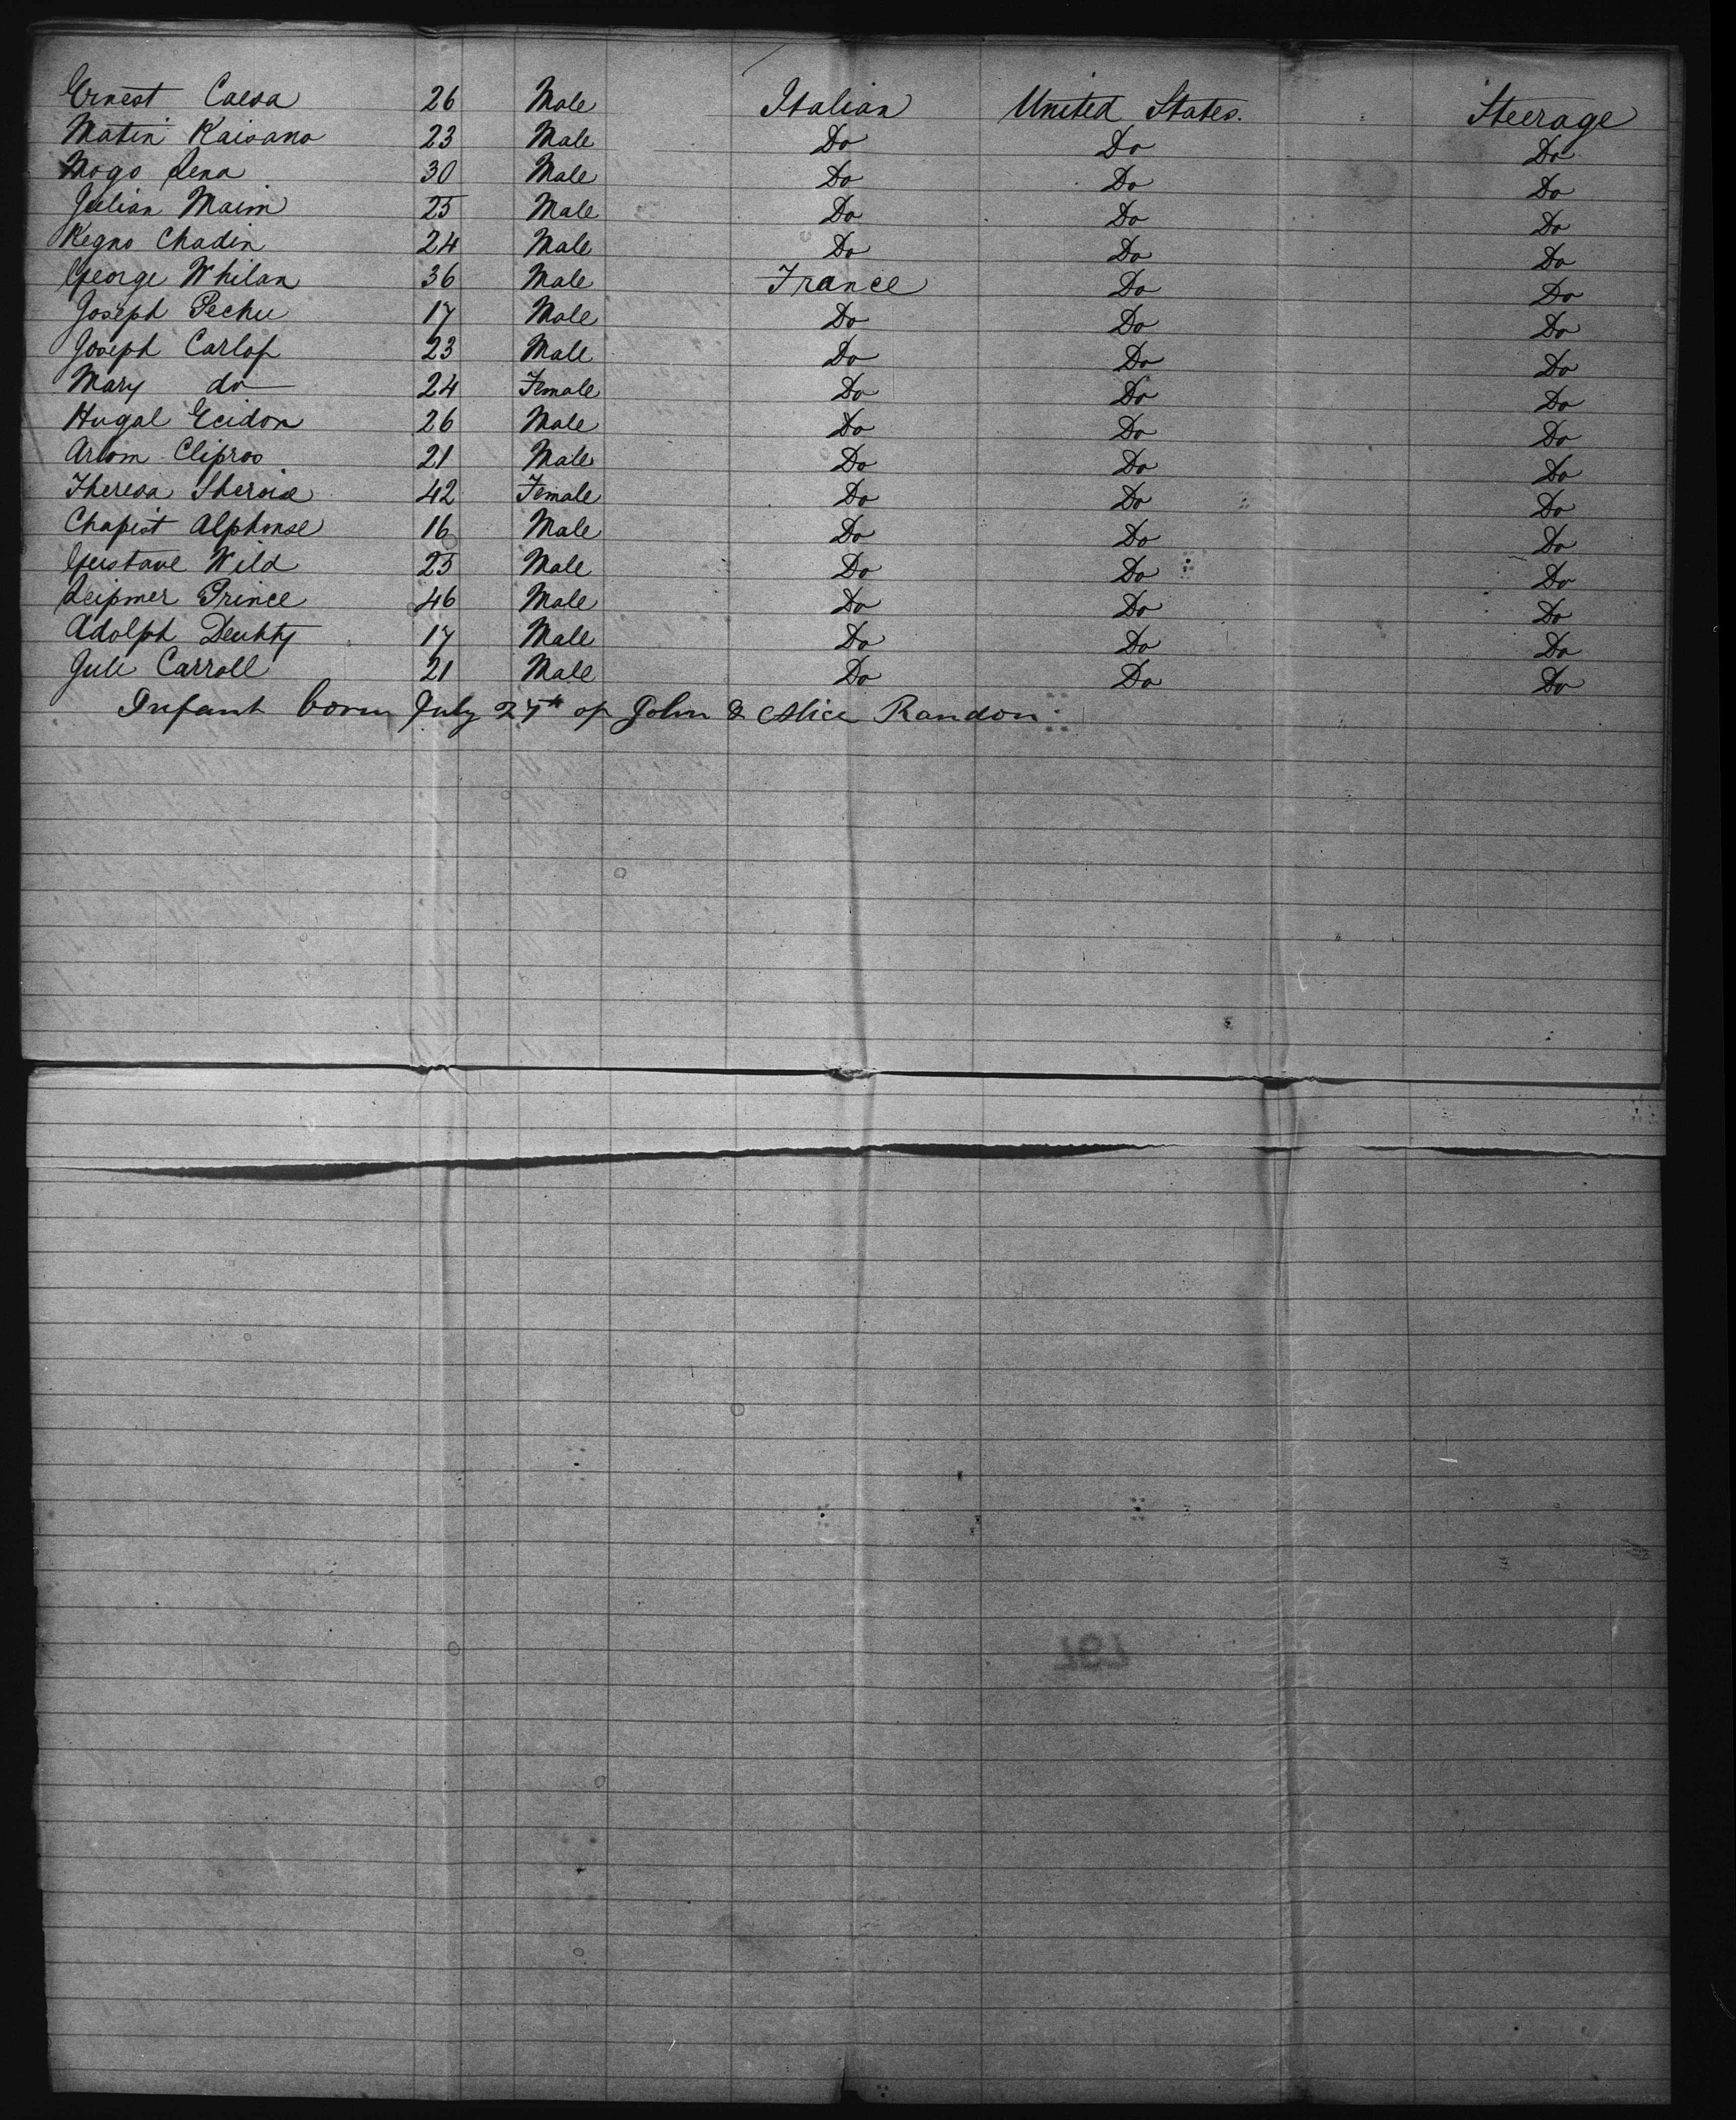 Ernest Caesa 26 Male Italian United States. Steerage
Matin Kaisano 23 Male Do Do Do
Mogo Lena 30 Male Do Do Do
Julian Maim 25 Male Do Do Do
Regno Chadin 24 Male Do Do Do
George Whilan 36 Male France Do Do
Joseph Pechu 17 Male Do Do Do
Joseph Carlof 23 Male Do Do Do
Mary do 24 Female Do Do Do
Hugal Ecidon 26 Male Do Do Do
Arlom Clipros 21 Male Do Do Do
Theresa 42 Female Do Do Do
Chapist Alphonse 16 Male Do Do Do
Gustave Wild 25 Male Do Do Do
Leipmer Prince 46 Male Do Do Do
Adolph 17 Male Do Do Do
Jule Carroll 21 Male Do Do Do
Infant born July 27th of John & Alice Randon
767